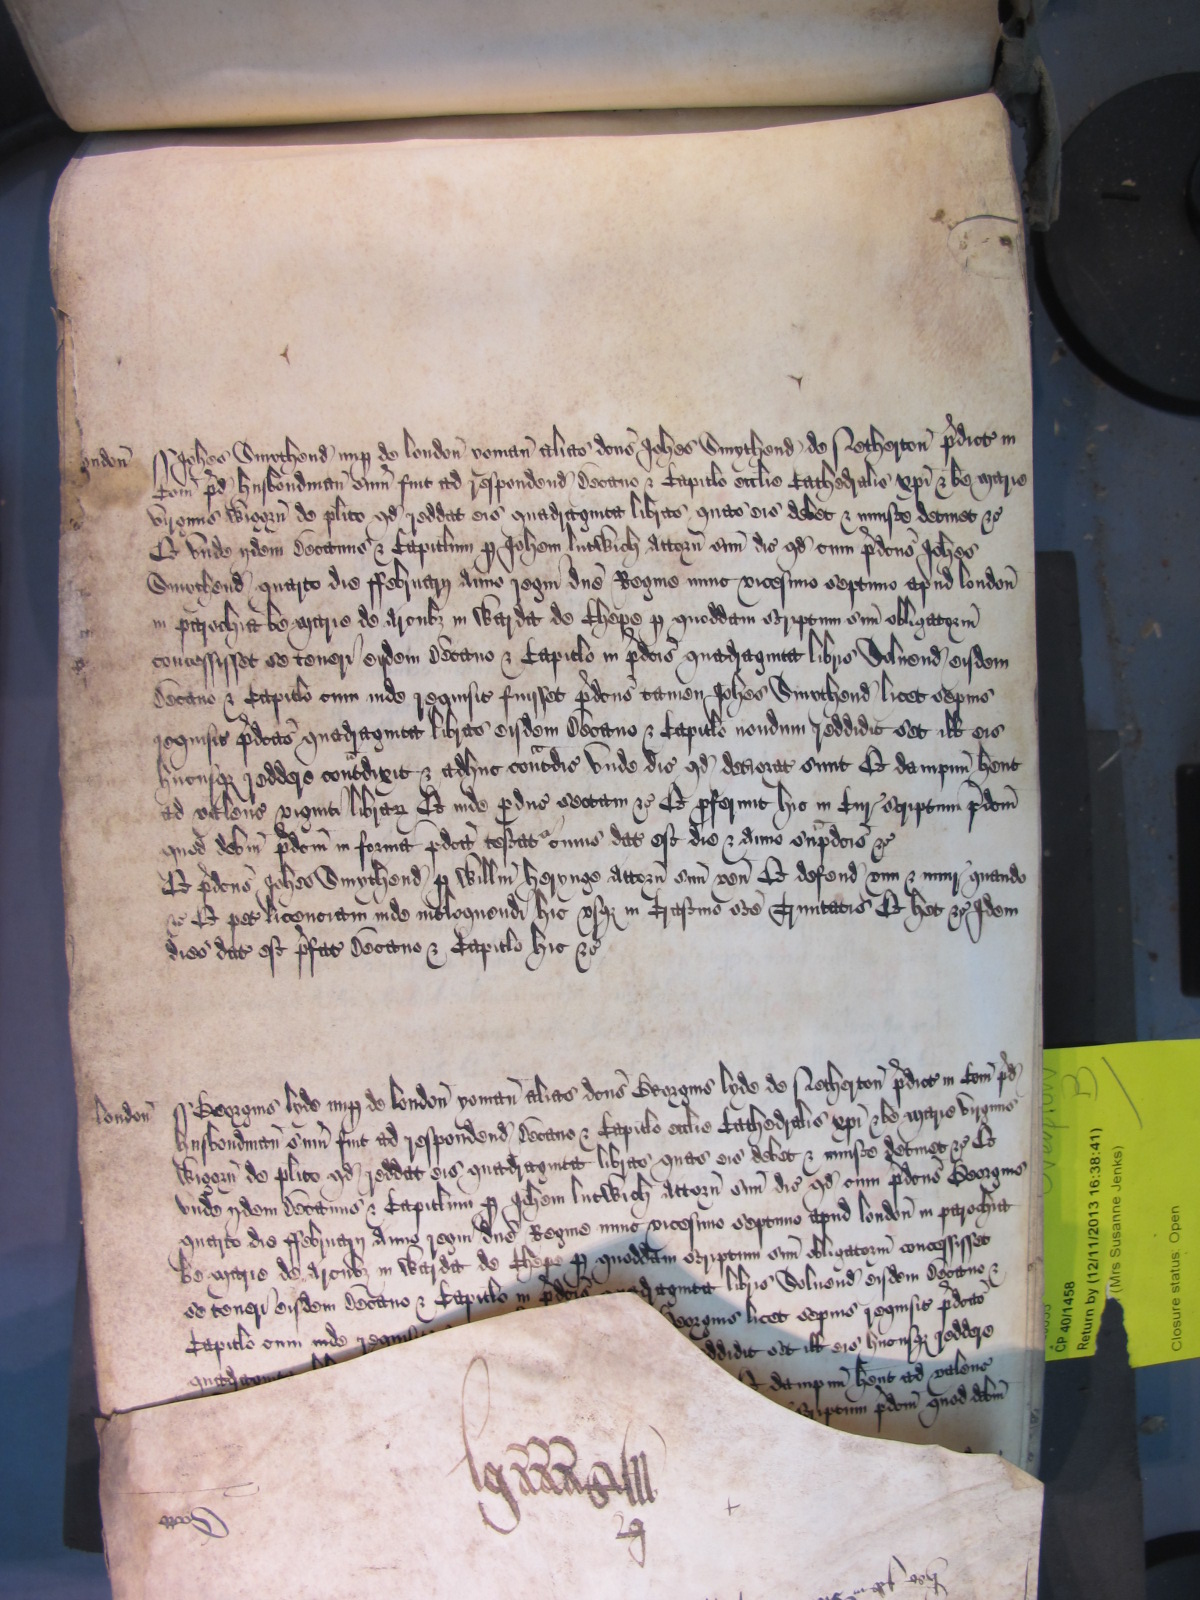 london Johes Smythend nup de london yoman alias dcus Johes Smythend de Netherton pdict in
Com pd husbondman sum fuit ad respondend Decano & Capitlo ecclie Cathedralis xpi & be marie
virginis Wigorn de plito qd reddat eis quadraginta libras quas eis debet & iniuste detinet &c
Et unde ijdem Decanus & Capitlum p Johem lutwich Attorn suu dic qd cum pdcus Johes
Smythend quarto die ffebruarij Anno regni dne Regine nunc vicesimo septimo apud london
in parochia be marie de Arcubz in Warda de Chepe p quoddam scriptum suu obligatorm
concessisset se teneri eijsdem Decano & Capitlo in pdcis quadraginta libris Soluend eisdem
Decano & Capitlo cum inde requisit fuisset pdcus tamen Johes Smythend licet sepius
requisit pdcas quadraginta libras eisdem Decano & Capitlo nondum reddidit set ill eis
hucusqz reddere contradixit & adhuc contradic Unde dic qd deteriorat sunt Et dampnum hent
ad valenc viginti librarz Et inde pduc sectam &c Et pferunt hic in Cur scriptum pdcm
quod debm pdcm in forma pdca testat cuius dat est die & Anno supradcis &c
Et pdcus Johes Smythend p Willm herynge Attorn suu ven Et defend vim & iniur quando
&c Et pet licenciam inde interloquendi hic usqz in Crastino sce Trinitatis Et het &c Idem
dies dat est pfat Decano & Capitlo hic &c
london Georgius lyde nup de london yoman alias dcus Georgius lyde de Netherton pdict in Com pd
husbondman sum fuit ad respondend Decano & Capitlo ecclie Cathedralis xpi & be marie virginis
Wigorn de plito qd reddat eis quadraginta libras quas eis debet & iniuste detinet &c Et
unde ijdem Decanus & Capitlum p Johem lutwich Attorn suu dic qd cum pdcus Georgius
quarto die ffebruarij Anno regni dne Regine nunc vicesimo septimo apud london in parochia
be marie de Arcubz in Warda de Chepe p quoddam scriptum suu obligatorm concessisset
se teneri eisdem Decano & Capitlo in pdcis quadraginta libris Soluend eisdem Decano &
Capitlo cum inde Georgius licet sepius requisit pdcas
set ill eis hucusqz reddere
dampnum hent ad valenc
scriptum pdcm quod debm
CP 40/1458
Return by (12/11/2013 16:38:41)
(Mrs Susanne Jenks)
Closure status: Open